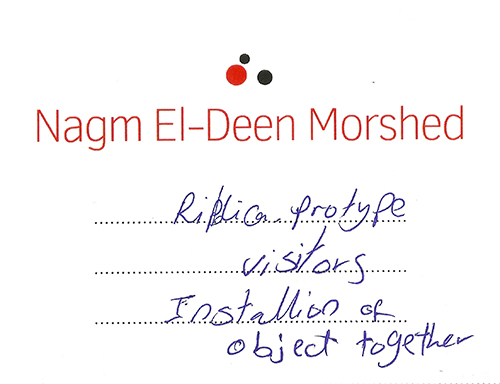 Nagm El-Deen Morshed
Riplica protype
visitors
Installion of
object together